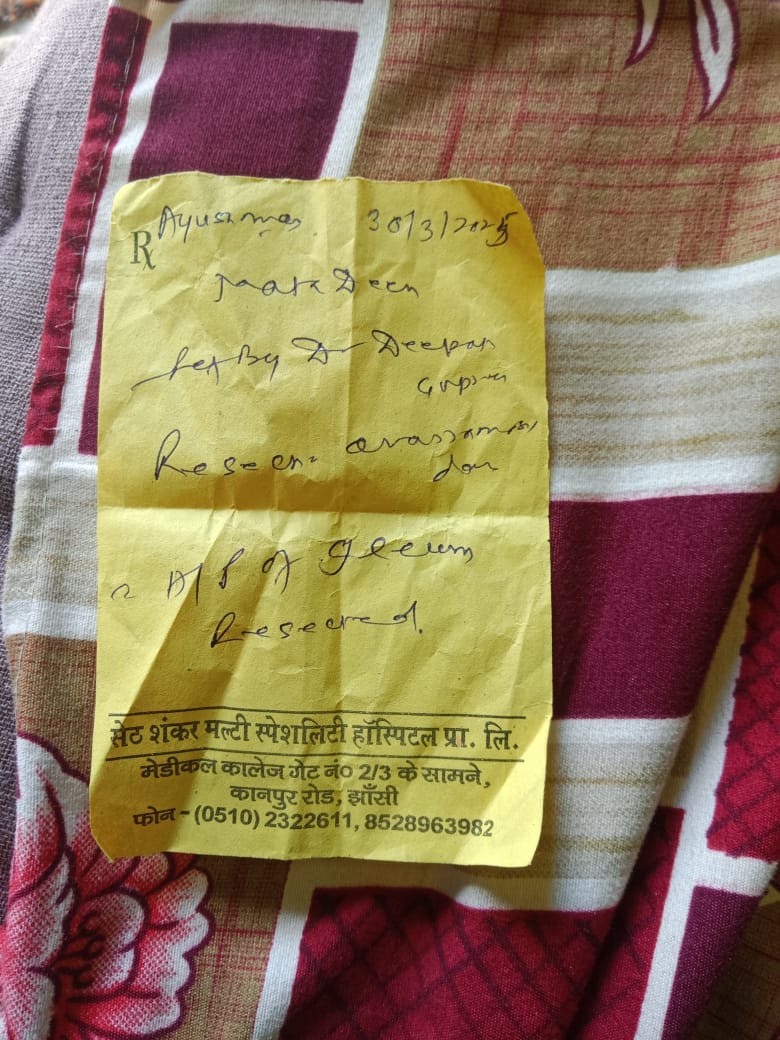 Ayushman 30/3/2025
Rx
Mata Deen
Ref By Dr Deepak
Gupta
Resec
A/P of Ileum
Resected.
सेठ शंकर मल्टी स्पेशलिटी हॉस्पिटल प्रा. लि.
मेडीकल कालेज गेट नं० 2/3 के सामने,
कानपुर रोड, झाँसी
फोन - (0510) 2322611, 8528963982